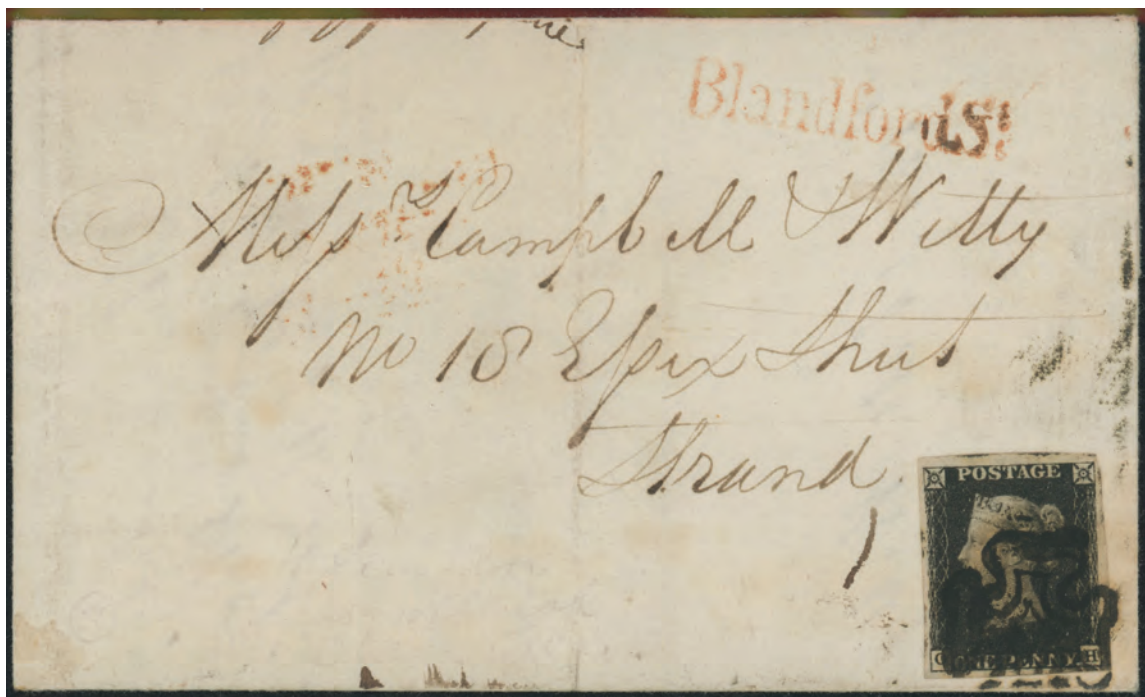 Blandford St:
Miss Campbell & Witty
No 18 Essex Street
Strand
1
POSTAGE
ONE PENNY
H